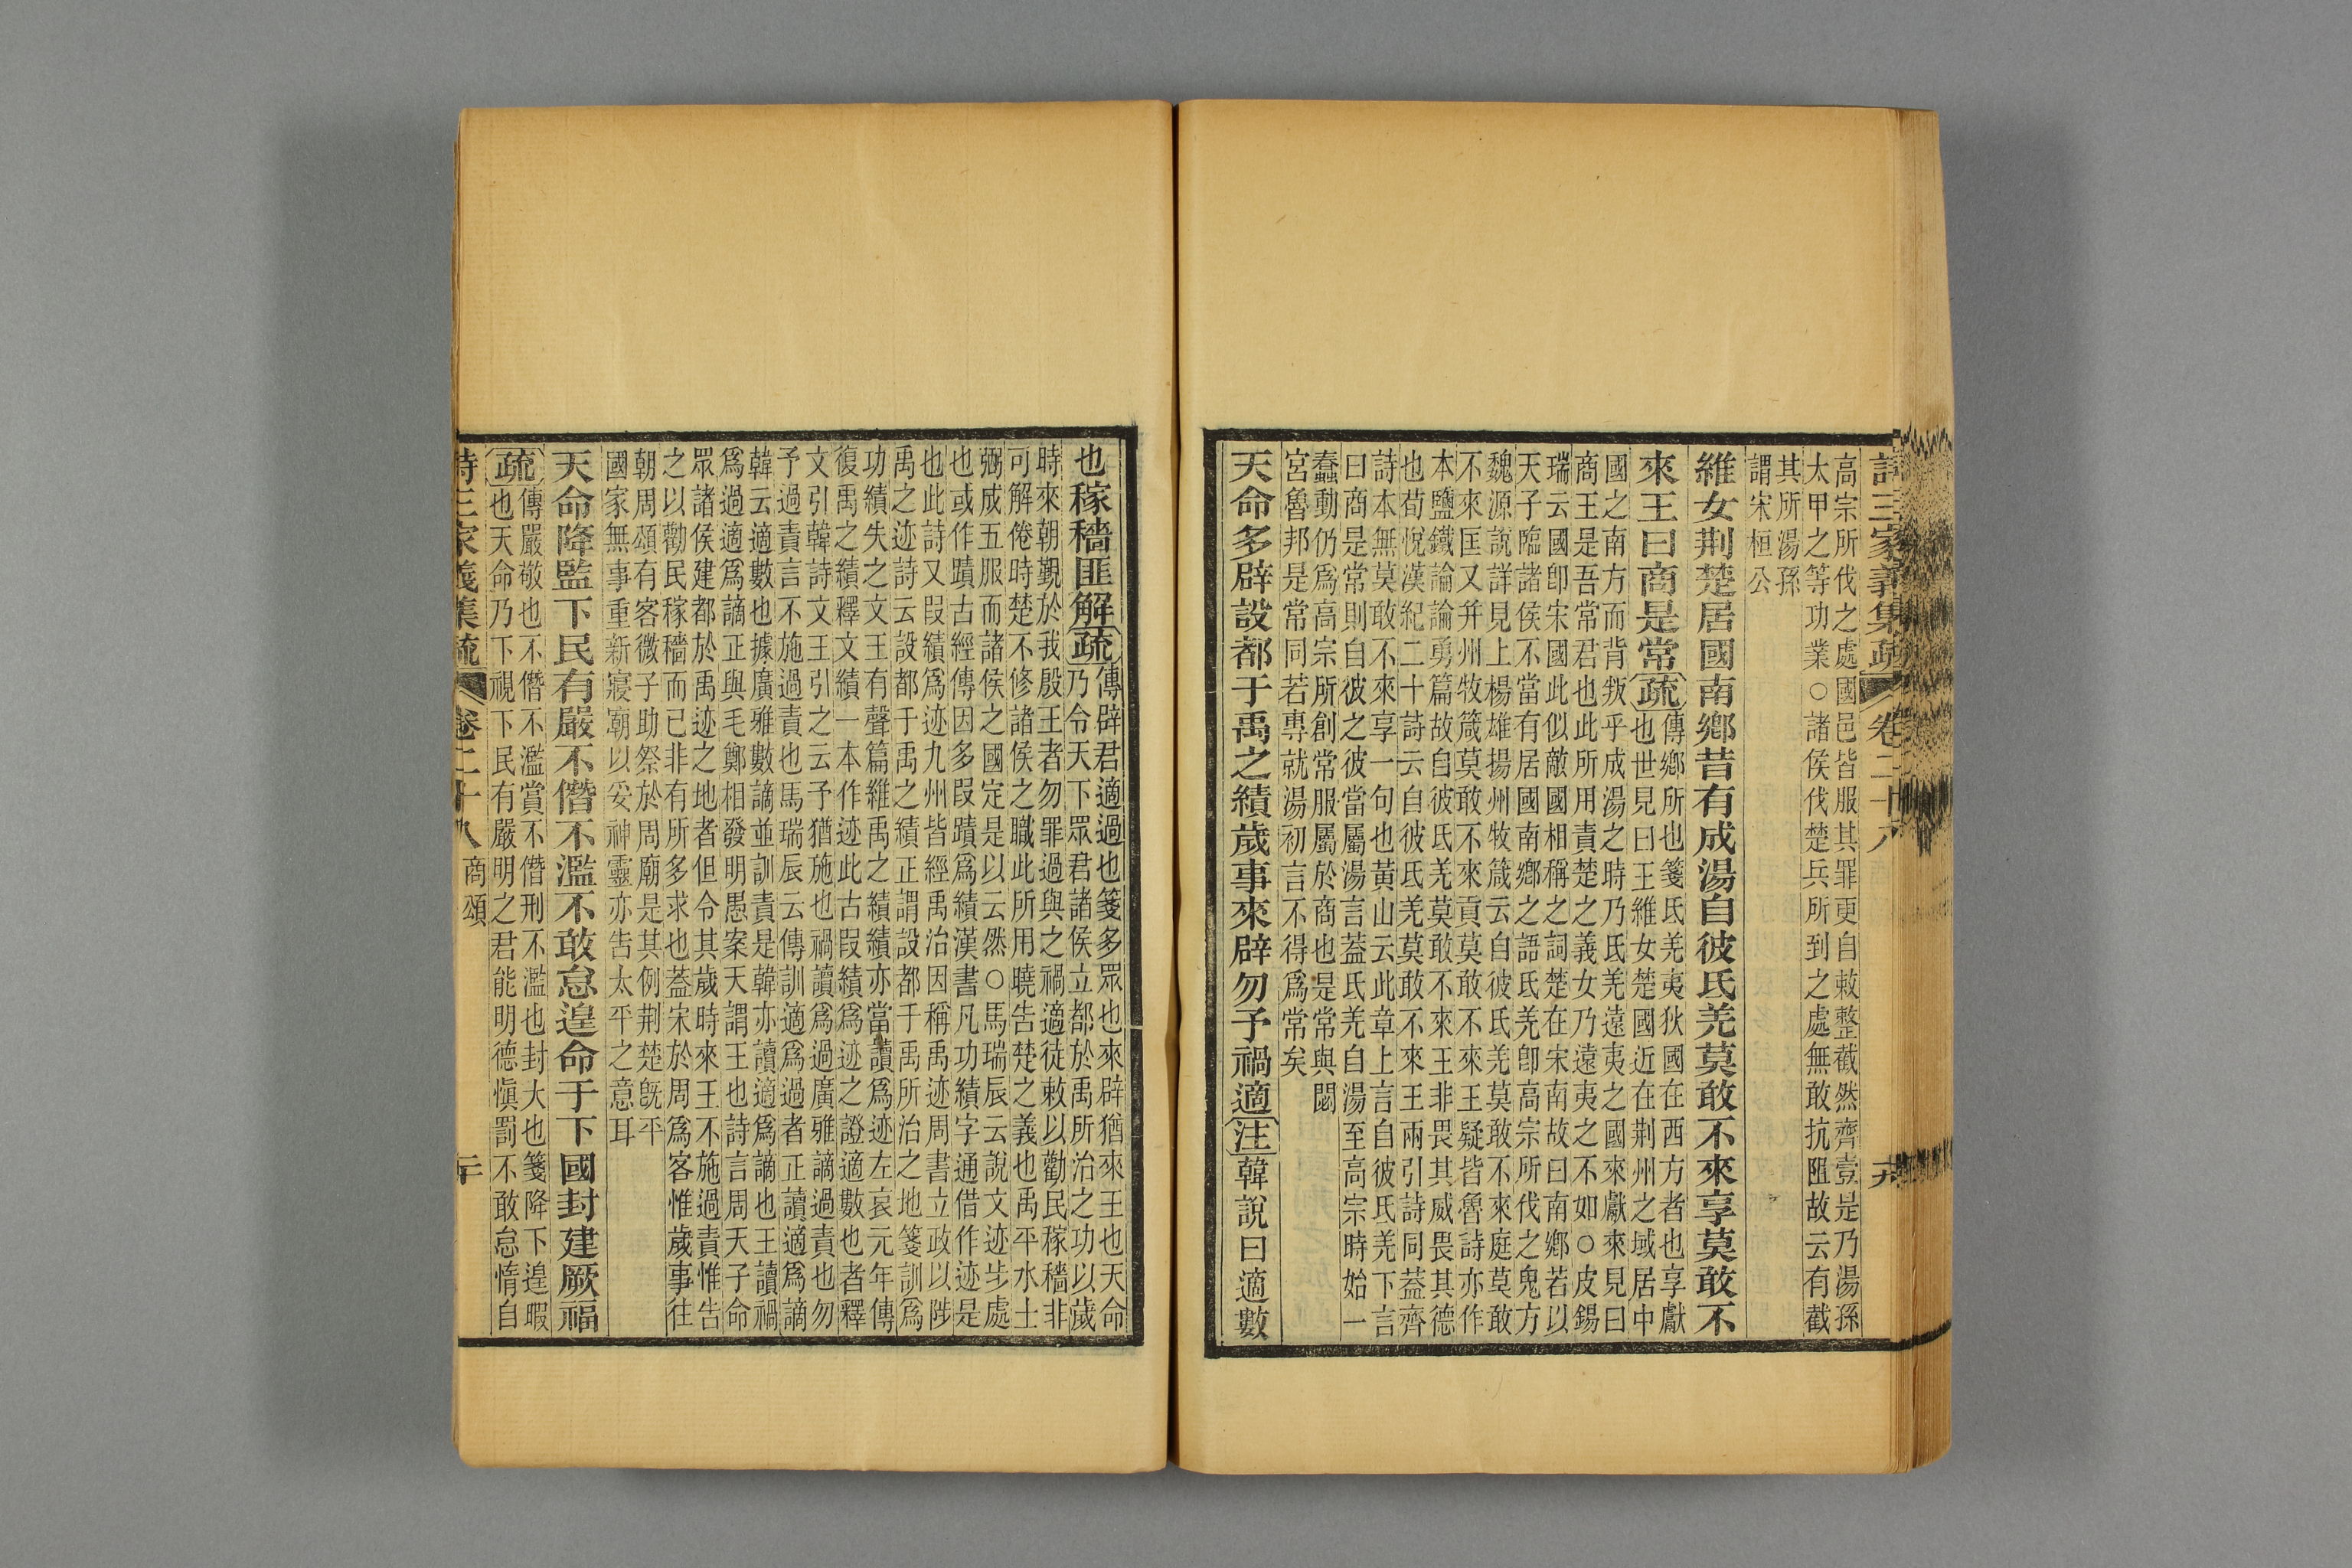 詩三家義集疏 卷二十八 十九
高宗所伐之處國邑皆服其罪更自敕整截然齊壹是乃湯孫
太甲之等功業○諸侯伐楚兵所到之處無敢抗阻故云有截
其所湯孫
謂宋桓公
維女荆楚居國南鄉昔有成湯自彼氐羌莫敢不來享莫敢不
來王曰商是常疏
傳鄉所也箋氐羌夷狄國在西方者也享獻
也世見曰王維女楚國近在荆州之域居中
國之南方而背叛乎成湯之時乃氐羌遠夷之國來獻來見曰
商王是吾常君也此所用責楚之義女乃遠夷之不如○皮錫
瑞云國卽宋國此似敵國相稱之詞楚在宋南故曰南鄉若以
天子臨諸侯不當有居國南鄉之語氐羌卽高宗所伐之鬼方
魏源說詳見上楊雄揚州牧箴云自彼氐羌莫敢不來庭莫敢
不來匡又幷州牧箴莫敢不來貢莫敢不來王疑皆魯詩亦作
本鹽鐵論論勇篇故自彼氐羌莫敢不來王非畏其威畏其德
也荀悅漢紀二十詩云自彼氐羌莫敢不來王兩引詩同蓋齊
詩本無莫敢不來享一句也黃山云此章上言自彼氐羌下言
曰商是常則自彼之彼當屬湯言蓋氐羌自湯至高宗時始一
蠢動仍爲高宗所創常服屬於商也是常與閟
宮魯邦是常同若專就湯初言不得爲常矣
天命多辟設都于禹之績歲事來辟勿予禍適注韓說曰適數
也稼穡匪解疏
傳辟君適過也箋多眾也來辟猶來王也天命
乃令天下眾君諸侯立都於禹所治之功以歲
時來朝覲於我殷王者勿罪過與之禍適徒敕以勸民稼穡非
可解倦時楚不修諸侯之職此所用曉告楚之義也禹平水土
弼成五服而諸侯之國定是以云然○馬瑞辰云說文迹步處
也或作蹟古經傳因多叚蹟爲績漢書凡功績字通借作迹是
也此詩又叚績爲迹九州皆經禹治因稱禹迹周書立政以陟
禹之迹詩云設都于禹之績正謂設都于禹所治之地箋訓爲
功績失之文王有聲篇維禹之績績亦當讀爲迹左哀元年傳
復禹之績釋文績一本作迹此古叚績爲迹之證適數也者釋
文引韓詩文王引之云予猶施也禍讀爲過廣雅謫過責也勿
予過責言不施過責也馬瑞辰云傳訓適爲過者正讀適爲謫
韓云適數也據廣雅數謫並訓責是韓亦讀適爲謫也王讀禍
爲過適爲謫正與毛鄭相發明愚案天謂王也詩言周天子命
眾諸侯建都於禹迹之地者但令其歲時來王不施過責惟告
之以勸民稼穡而已非有所多求也蓋宋於周爲客惟歲事往
朝周頌有客微子助祭於周廟是其例荆楚旣平
國家無事重新寢廟以妥神靈亦告太平之意耳
天命降監下民有嚴不僭不濫不敢怠遑命于下國封建厥福
疏
傳嚴敬也不僭不濫賞不僭刑不濫也封大也箋降下遑暇
也天命乃下視下民有嚴明之君能明德愼罰不敢怠惰自
詩三家義集疏 卷二十八 商頌 二十